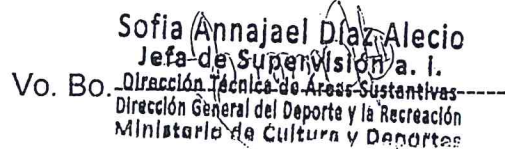 Sofia Annajael Díaz Alecio
Jefa de Supervisión a. i.
Vo. Bo. Dirección Técnica de Áreas Sustantivas
Dirección General del Deporte y la Recreación
Ministerio de Cultura y Deportes